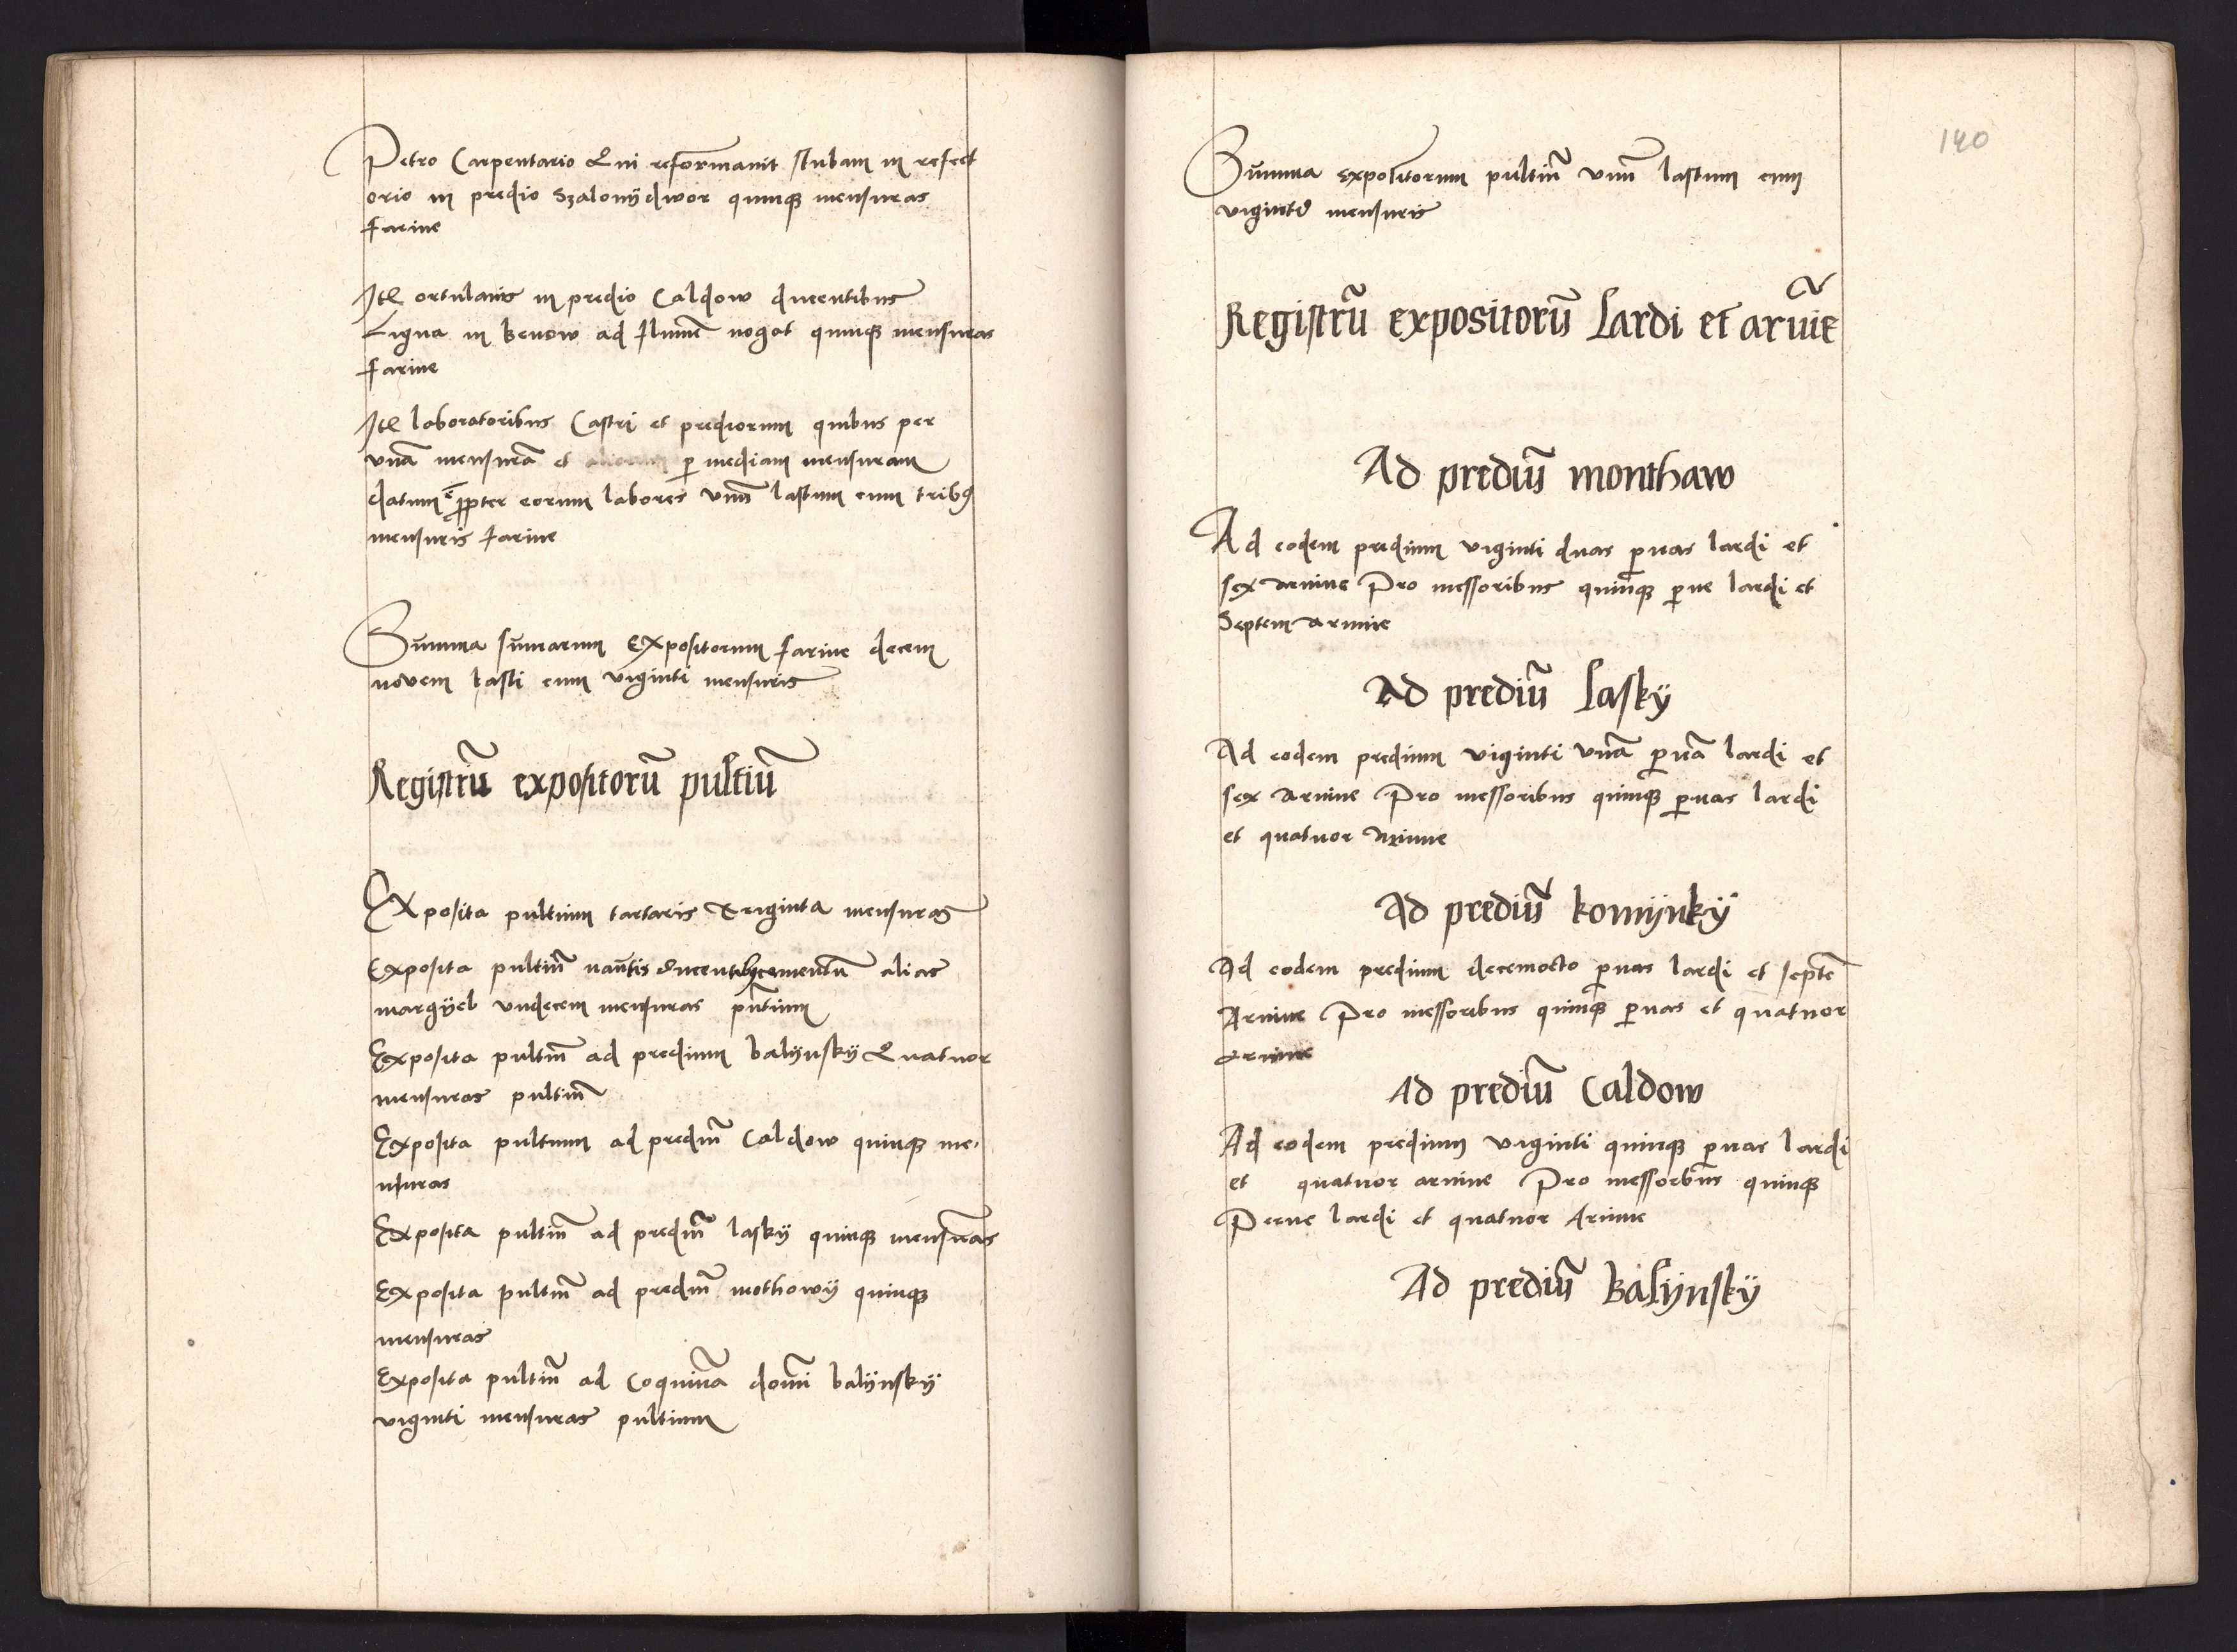 Petro Carpentario Qui reformavit stubam in refect
orio in predio Szalonÿdwor quinqꝫ mensuras
farine
Itē ortulanis in predio Caldow ducentibus
Ligna in Benow ad flumē nogat quinqꝫ mensuras
farine
Itē laboratoribus Castri et prediorum quibus per
vnā mensurā et ꝑ mediam mensuram
datum ē ꝓpter eorum labores vnū lastum cum tribꝰ
mensuris farine
Summa sūmarum Expositorum farine decem
novem lasti cum viginti mensuris
Registrū expositorū pultiū
Exposita pultium tartaris Triginta mensuras
Exposita pultiū nautis ducentibꝰ cementū alias
margÿel vndecem mensuras pultium
Exposita pultiū ad predium balÿnskÿ Quatuor
mensuras pultiū
Exposita pultium ad prediū Caldow quinqꝫ me-
nsuras
Exposita pultiū ad prediū laskÿ quinqꝫ mensuras
Exposita pultiū ad prediū mothowÿ quinqꝫ
mensuras
Exposita pultiū ad Coquinā domī balÿnskÿ
viginti mensuras pultium
140
Summa expositorum pultiū vnū lastum cum
viginti mensuris
Registrū expositorū Lardi et arvīe
Ad prediū monthaw
Ad eodem predium viginti duas ꝑnas lardi et
sex arvine Pro messoribus quinqꝫ ꝑne lardi et
Septem arvine
Ad prediū Laskÿ
Ad eodem predium viginti vnā ꝑnā lardi et
sex arvine Pro messoribus quinqꝫ ꝑnas lardi
et quatuor Arvine
Ad prediū komÿnkÿ
Ad eodem predium decemocto ꝑnas lardi et septē
Arvine Pro messoribus quinqꝫ ꝑnas et quatuor
arvine
Ad prediū Caldow
Ad eodem predium viginti quinqꝫ ꝑnas lardi
et quatuor arvine Pro messoribus quinqꝫ
Perne lardi et quatuor Arvine
Ad prediū Balÿnskÿ